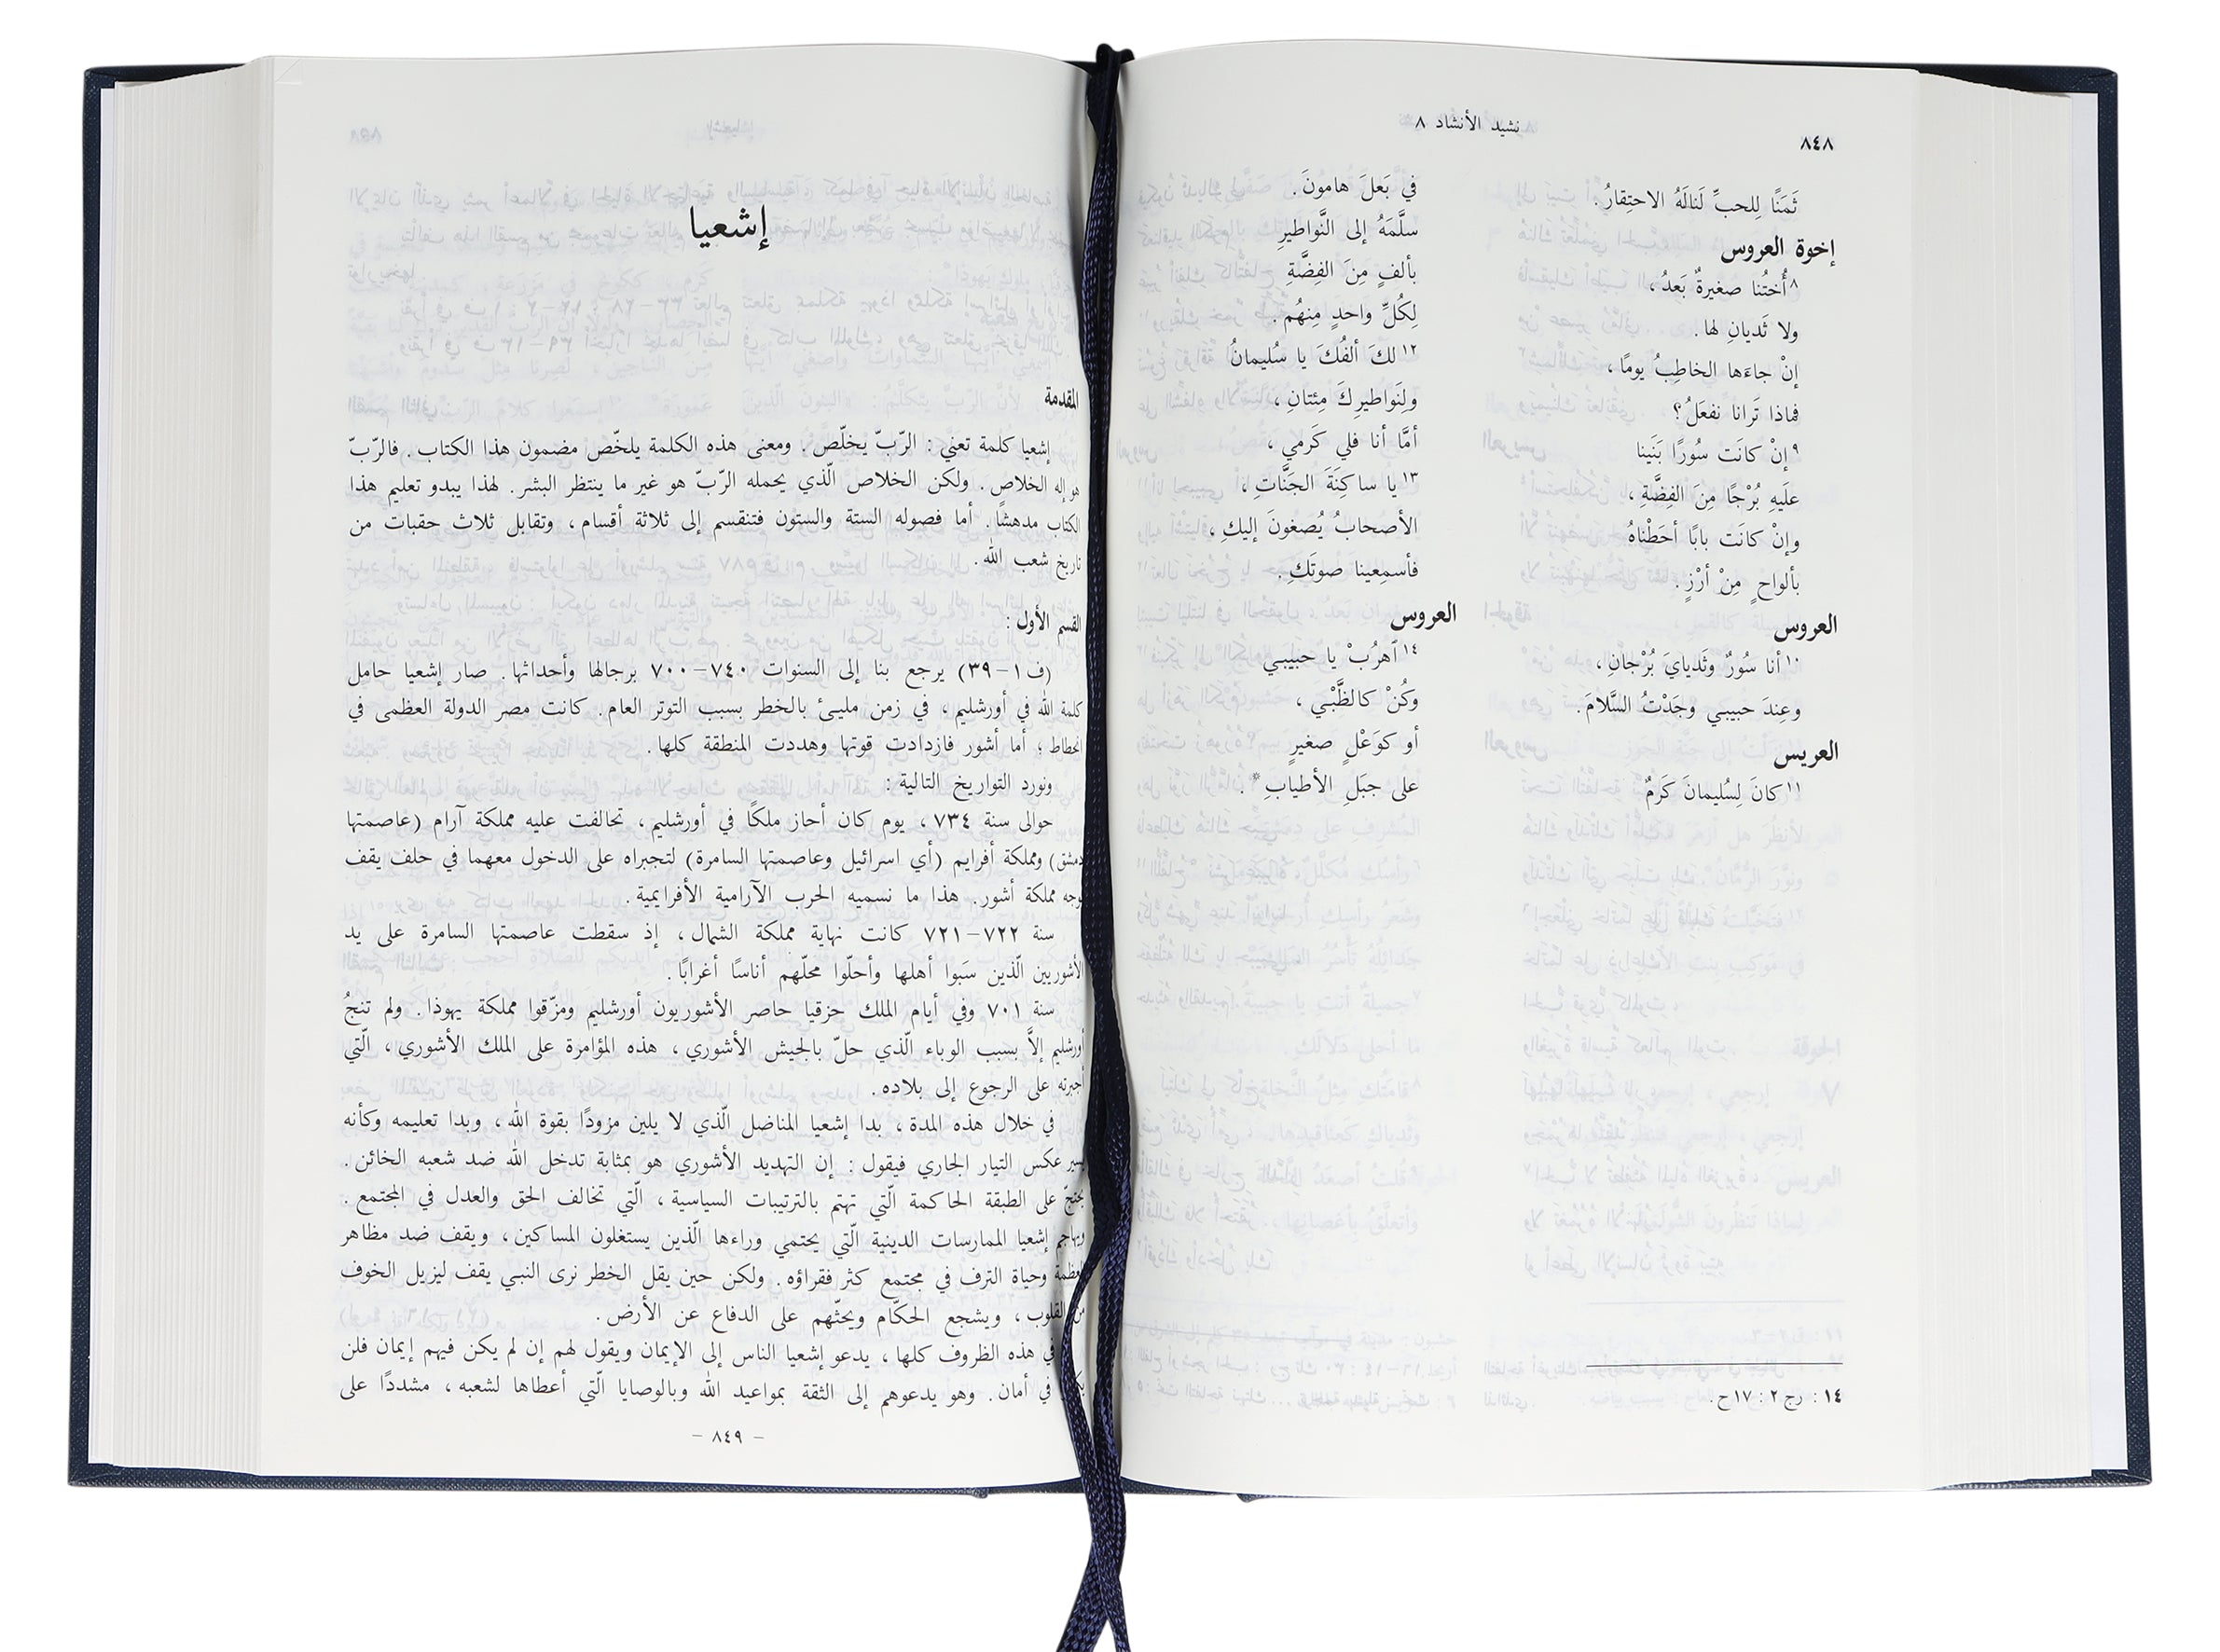 ٨٤٨
نشيد الأنشاد ٨
ثَمَنًا لِلحبِّ لَنالَهُ الاحتِقارُ.
إخوة العروس
٨أُختُنا صغيرةٌ بَعدُ،
ولا ثَديانِ لها.
إنْ جاءَها الخاطِبُ يومًا،
فماذا تَرانا نفعَلُ؟
٩إنْ كانَت سُورًا بَنَينا
علَيهِ بُرْجًا مِنَ الفِضَّةِ،
وإنْ كانَت بابًا أحَطْناهُ
بألواحٍ مِنْ أرْزٍ.
العروس
١٠أنا سُورٌ وثَديايَ بُرْجانِ،
وعِندَ حبيبي وجَدْتُ السَّلامَ.
العريس
١١كانَ لِسُليمانَ كَرمٌ
في بَعلَ هامونَ.
سلَّمَهُ إلى النَّواطيرِ
بألفٍ مِنَ الفِضَّةِ
لِكُلِّ واحدٍ مِنهُم.
١٢لكَ ألفُكَ يا سُليمانُ
ولِنَواطيرِكَ مِئتانِ،
أمَّا أنا فلي كَرمي،
١٣يا ساكِنَةَ الجَنَّاتِ،
الأصحابُ يُصغونَ إليكِ،
فأسمِعينا صوتَكِ.
العروس
١٤اَهرُبْ يا حبيبي
وكُنْ كالظَّبْي،
أو كوَعْلٍ صغيرٍ
على جبَلِ الأطيابِ*.
١٤: رج ٢: ١٧ح.
إشعيا
المقدمة
إشعيا كلمة تعني: الرّبّ يخلّص. ومعنى هذه الكلمة يلخّص مضمون هذا الكتاب. فالرّبّ
هو إله الخلاص. ولكن الخلاص الّذي يحمله الرّبّ هو غير ما ينتظر البشر. لهذا يبدو تعليم هذا
الكتاب مدهشًا. أما فصوله الستة والستون فتنقسم إلى ثلاثة أقسام، وتقابل ثلاث حقبات من
تاريخ شعب الله.
القسم الأول:
(ف ١–٣٩) يرجع بنا إلى السنوات ٧٤٠–٧٠٠ برجالها وأحداثها. صار إشعيا حامل
كلمة الله في أورشليم، في زمن مليئ بالخطر بسبب التوتر العام. كانت مصر الدولة العظمى في
انحطاط؛ أما أشور فازدادت قوتها وهددت المنطقة كلها.
ونورد التواريخ التالية:
حوالى سنة ٧٣٤، يوم كان أحاز ملكًا في أورشليم، تحالفت عليه مملكة آرام (عاصمتها
دمشق) ومملكة أفرايم (أي اسرائيل وعاصمتها السامرة) لتجبراه على الدخول معهما في حلف يقف
بوجه مملكة أشور. هذا ما نسميه الحرب الآرامية الأفرايمية.
سنة ٧٢٢–٧٢١ كانت نهاية مملكة الشمال، إذ سقطت عاصمتها السامرة على يد
الأشوريين الّذين سَبوا أهلها وأحلّوا محلّهم أناسًا أغرابًا.
سنة ٧٠١ وفي أيام الملك حزقيا حاصر الأشوريون أورشليم ومزّقوا مملكة يهوذا. ولم تنجُ
أورشليم إلاَّ بسبب الوباء الّذي حلّ بالجيش الأشوري، هذه المؤامرة على الملك الأشوري، الّتي
أجبرته على الرجوع إلى بلاده.
في خلال هذه المدة، بدا إشعيا المناضل الّذي لا يلين مزودًا بقوة الله، وبدا تعليمه وكأنه
يسير عكس التيار الجاري فيقول: إن التهديد الأشوري هو بمثابة تدخل الله ضد شعبه الخائن.
يحتجّ على الطبقة الحاكمة الّتي تهتم بالترتيبات السياسية، الّتي تخالف الحق والعدل في المجتمع.
ويهاجم إشعيا الممارسات الدينية الّتي يحتمي وراءها الّذين يستغلون المساكين، ويقف ضد مظاهر
العظمة وحياة الترف في مجتمع كثر فقراؤه. ولكن حين يقل الخطر نرى النبي يقف ليزيل الخوف
من القلوب، ويشجع الحكّام ويحثّهم على الدفاع عن الأرض.
في هذه الظروف كلها، يدعو إشعيا الناس إلى الإيمان ويقول لهم إن لم يكن فيهم إيمان فلن
في أمان. وهو يدعوهم إلى الثقة بمواعيد الله وبالوصايا الّتي أعطاها لشعبه، مشددًا على
– ٨٤٩ –